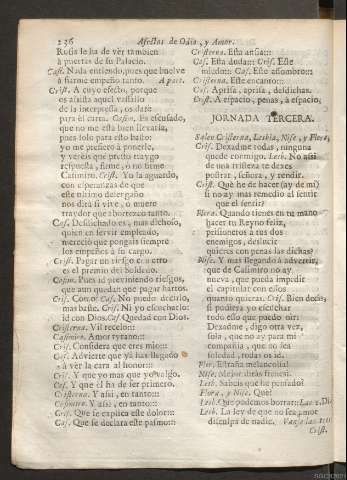 236 Afectos de Odio, y Amor.
Rusia le ha de ver tambien
à puertas de su Palacio.
Casi. Nada entiendo, pues que buelve
à firme empeño tanto. A part.
Crist. A cuyo efecto, porque
es asista aquel vassallo
de la interpresa, os date
para èl carta. Casim. Es escusado,
que no me està bien llevarla,
pues solo para esto basto:
yo me prefiero à ponerle,
y vereis que presto traygo
respuesta, firme, ò no firme
Casimiro. Crist. Yo la aguardo,
con esperanza de que
este ultimo desengaño
nos dirà si vive, ò muero
traydor que aborrezco tanto.
Cas. Desdichado es, mas dichoso,
quien en servir empleado,
mereciò que pongais siempre
los empeños à su cargo.
Crist. Pagar un riesgo con otro
es el premio del Soldado.
Casim. Pues id previniendo riesgos,
que aun quedais que pagar hartos.
Crist. Como? Cas. No puedo decirlo,
mas baste. Crist. Ni yo escucharlo:
id con Dios. Cas. Quedad con Dios.
Cristerna. Vil recelo:::
Casimiro. Amor tyrano:::
Crist. Considera que eres mio:::
Cas. Advierte que yà has llegado
à vèr la cara al honor:::
Crist. Y que yo mas que yo valgo.
Cas. Y que èl ha de ser primero.
Cristerna. Y assi, en tanto:::
Casimiro. Y assi, en tanto:::
Crist. Que se explica este dolor:::
Cas. Que se declara este pasmo:::
Cristerna. Esta ansia:::
Cas. Esta duda::: Crist. Este
miedo::: Cas. Este assombro:::
Cristerna. Este encanto:::
Cas. Aprisa, aprisa, desdichas.
Crist. A espacio, penas, à espacio.
JORNADA TERCERA.
Salen Cristerna, Lesbia, Nise, y Flora,
Crist. Dexadme todas, ninguna
quede conmigo. Lesb. No assi
de una tristeza te dexes
postrar, señora, y rendir.
Crist. Què he de hacer (ay de mi)
si no ay mas remedio al sentir
que el sentir?
Flora. Quando tienes en tu mano
hacer tu Reyno feliz,
prisioneros à tus dos
enemigos, deslucir
quieres con penas las dichas?
Nise. Y mas llegando à advertir,
que de Casimiro no ay
nueva, que pueda impedir
el capitular con ellos
quanto quieras. Crist. Bien decis,
si pudiera yo escuchar
todo esso que puedo oir:
Dexadme, digo otra vez,
sola, que no ay para mi
compañia, que no sea
soledad, todas os id.
Flor. Estraña melancolia!
Nise. Mejor diràs frenesi.
Lesb. Sabeis què he pensado?
Flora, y Nise. Què?
Lesb. Que podemos borrar:: Las 2. Di
Lesb. La ley de que no sea amor
disculpa de nadie. Vanse las tres
Crist.